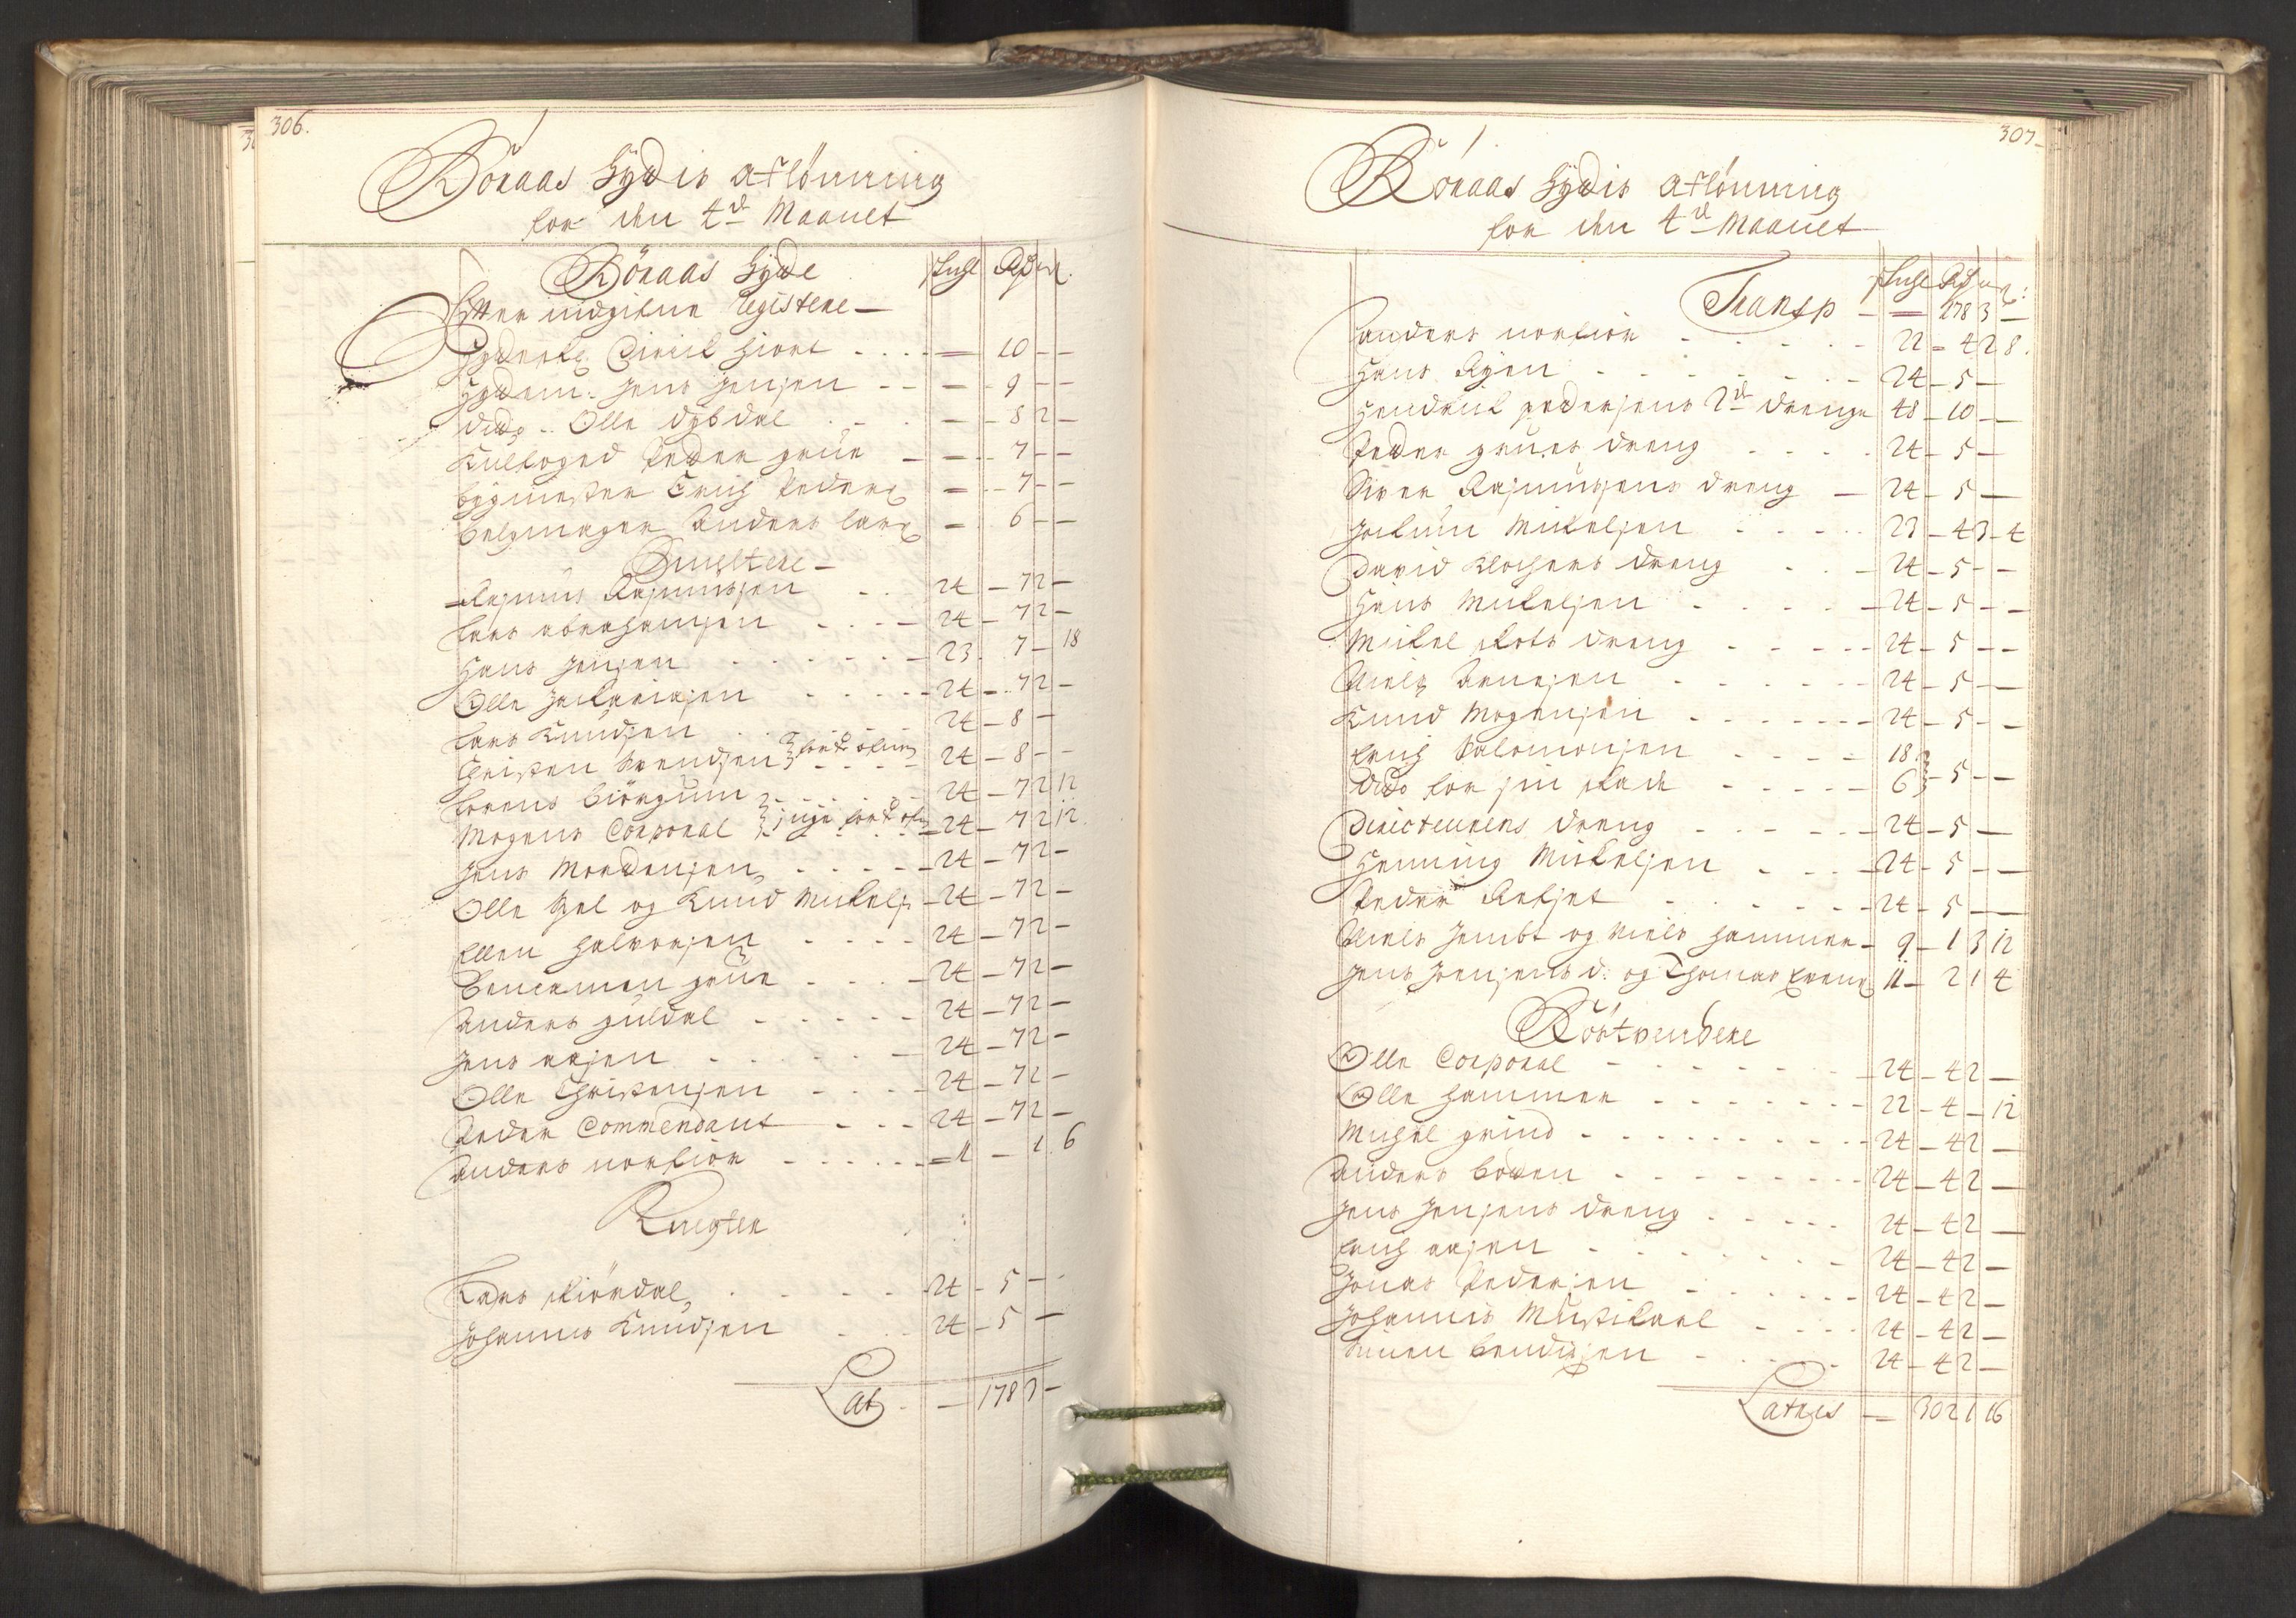 306.
Röraas Hÿdis aflönning
for den 4de Maanet
Röraas Hÿde
Efter indgifne Registere —
Hÿdens: Jens Jensen - - — 9 — —
dido - Olle Dÿbdal . - . — 8 2 —
Kulfoged Peder grue — — 7 — —
bÿgmester Erich Peders — 7 — —
belgmager Anders lars — 6 — —
Smeltere —
Rasmus Rasmussen - . 24 — 7 2 —
Lars abrahamsen - - - 24 — 7 2 —
Hans Jensen - - - - - 23 . 7 — 18
Olle Zacariasen - - - 24 — 7 2 —
Lars Knudsen - - - 24 — 8 —
Christen Svendsen - - - 24 — 8 — —
Lorens biörgum - - - 24 — 7 2 12
Mogens Corporal - - - 24 — 7 2 12
Jens Mordensen - - - - 24 — 7 2 —
Olle Hel og Knud Mikels - 24 — 7 2 —
Ellen halvorsen - - - - 24 — 7 2 —
Bencamen grue - - - 24 — 7 2 —
Anders guldal - - - - - 24 — 7 2 —
Jens arsen - - - - - 24 — 7 2 —
Olle Christensen - - - 24 — 7 2 —
Peder Commendant - - - 24 — 7 2 —
Anders norfior - - - - - - 1 . 6
Knegter
Lars Kiördal - - - - - 24 — 5 —
Johannis Knudsen - - 24 — 5 —
Lat - — 178 3 —
307
Röraas Hÿdis aflönning
for den 4de Maanet
Transp — — 178 3 —
Anders norfior - - - - - 22 — 4 2 8
Hans Aÿen - - - - - 24 — 5 —
Hendrik pedersens 2de drenge 48 — 10 —
Peder grues dreng - - - - 24 — 5 —
Siver Rasmussens dreng — 24 — 5 —
Jochum Mikelsen - - - - 23 — 4 3 4
David Klochers dreng - - — 24 — 5 — —
Hans Mikelsen - - - - - 24 — 5 — —
Mikel skots dreng - - - - - 24 — 5 — —
Niels Arnesen - - - - - - 24 — 5 —
Knud Mogensen - - - - - - 24 — 5 — —
Erich Salomonsen - - - - 18
Dido for sin skade - - - - - 6 — 5 — —
Directeurens dreng - - - - 24 — 5 —
Henning Mikelsen - - - 24 — 5 — —
Peder - - - - - 24 — 5 —
Niels Jembt og Niels hammer — 9 — 1 3 12
Jens Jensens d: og Thomas 11 — 2 1 4
Röstvendere
Olle Corporal - - - - - 24 — 4 2 —
Olle hammer - - - - - - - 22 — 4 — 12
Michel grind - - - - - - - - - 24 — 4 2 —
Anders boden - - - - - - - 24 — 4 2 —
Jens Jensens dreng - - - - - 24 — 4 2 —
Erich arsen - - - - - - 24 — 4 2 —
Jonas Pedersen - - - - - - 24 — 4 2 —
Johannis Mustikael - - - - 24 — 4 2 —
Simen bendixen - - - - - 24 — 4 2 —
Lateris — 302 1 16